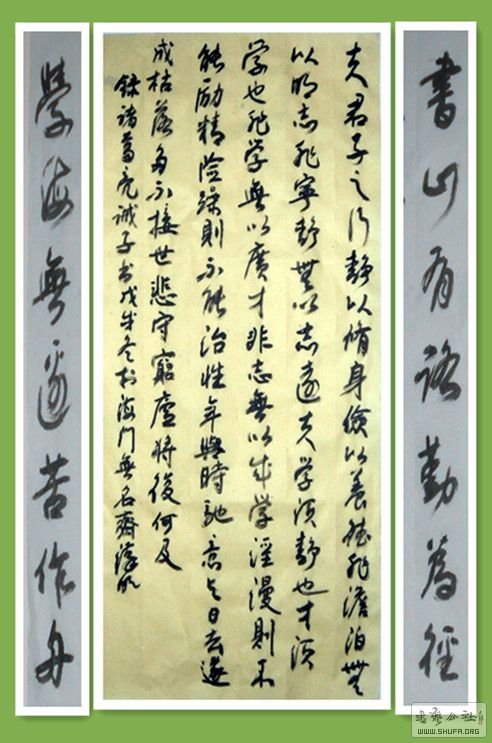 書山有路勤為徑
夫君子之行静以脩身儉以養德非澹泊無
以明志非寧静無以志遠夫学須静也才須
学也非学無以廣才非志無以成学淫漫則不
能励精险躁則不能治性年與時馳意与日去遂
成枯落多不接世悲守窮廬將復何及
錄諸葛亮诫子书戊戌冬於海门無名齋
學海無邊苦作舟
書艺公社
WWW.SHUFA.ORG